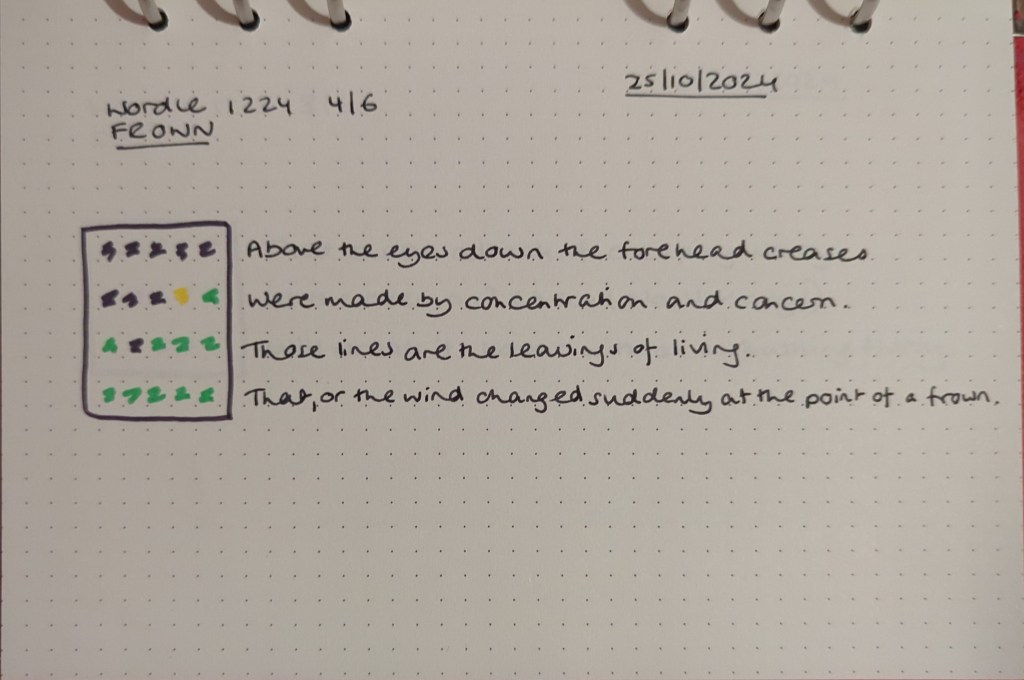 25/10/2024
Wordle 1224 4/6
FROWN
Above the eyes down the forehead creases
were made by concentration and concern.
Those lines are the leavings of living.
That, or the wind changed suddenly at the point of a frown.